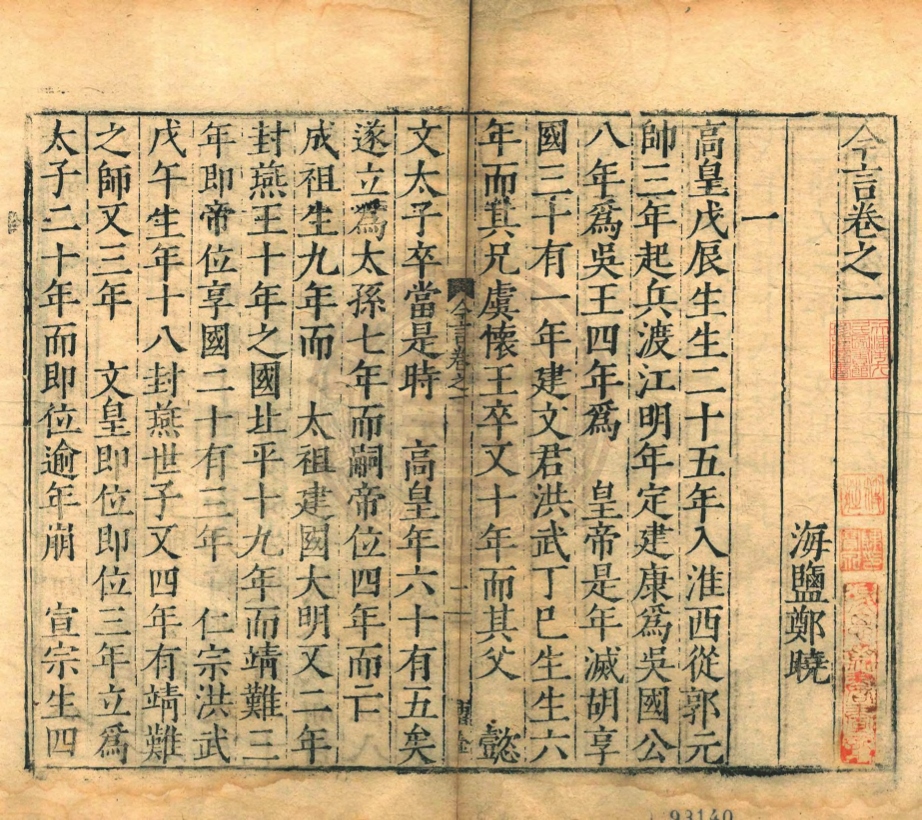 今言卷之一
海鹽鄭曉
一
高皇戊辰生生二十五年入淮西從郭元
帥三年起兵渡江明年定建康爲吳國公
八年爲吳王四年爲　皇帝是年滅胡享
國三十有一年建文君洪武丁巳生生六
年而其兄虞懷王卒又十年而其父　懿
文太子卒當是時　高皇年六十有五矣
遂立爲太孫七年而嗣帝位四年而亡
成祖生九年而　太祖建國大明又二年
封燕王十年之國北平十九年而靖難三
年即帝位享國二十有三年　仁宗洪武
戊午生年十八封燕世子又四年有靖難
之師又三年　文皇即位即位三年立爲
太子二十年而即位逾年崩　宣宗生四
今言卷之一
一
93140